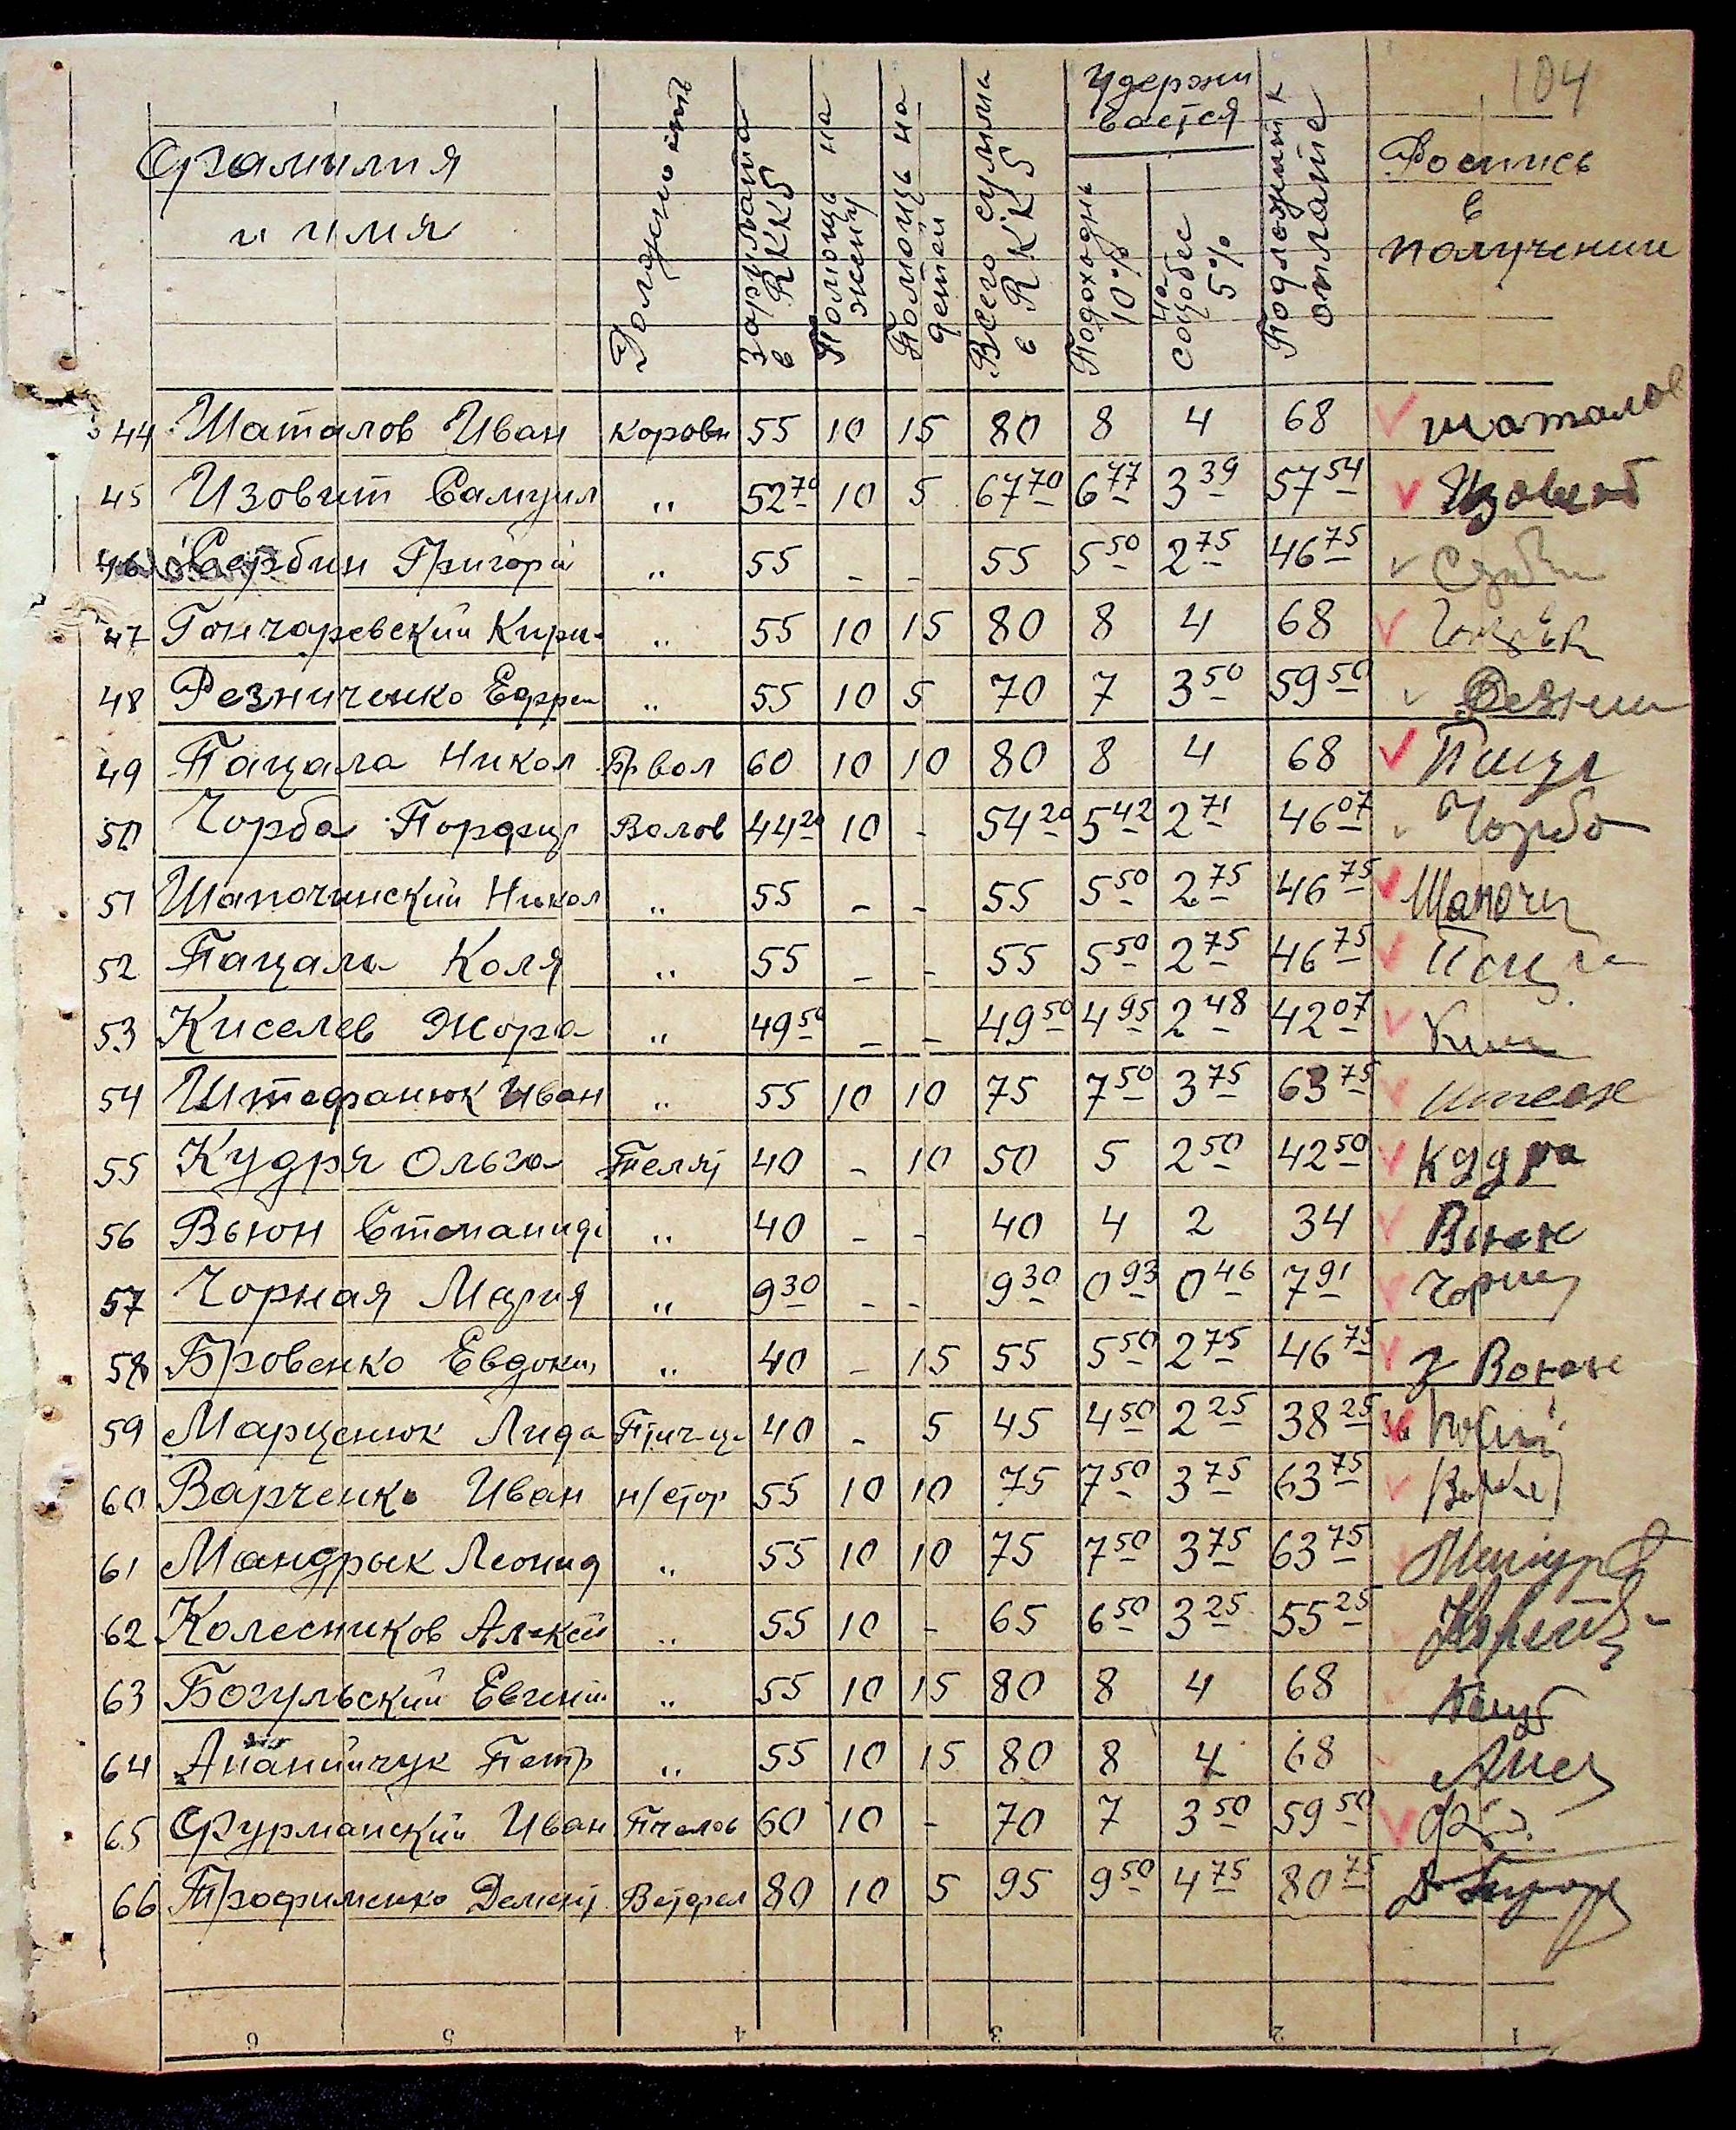 104
Фамилия
и имя
Должность
Зарплата
в RKKS
Помощь на
жену
Помощь на
детей
Всего сумма
в RKKS
Удержи
вается
Подоходн
10%
на
соцобес
5%
Подлежит к
оплате
Роспись
в
получении
44 Шаталов Иван коровн 55 10 15 80 8 4 68 Шаталов
45 Изовит Самуил " 52 70 10 5 67 70 6 77 3 39 57 54 Изовит
46 Сербин Григори " 55 - - 55 5 50 2 75 46 75
47 Гончаревский Кири- " 55 10 15 80 8 4 68
48 Резниченко Ефрем " 55 10 5 70 7 3 50 59 50 Резни
49 Пацала Никол Бр вол 60 10 10 80 8 4 68 Пацал
50 Чорба Порфир Волов 44 20 10 - 54 20 5 42 2 71 46 07 Чорба
51 Шапочинский Никол " 55 - - 55 5 50 2 75 46 75 Шапочи
52 Пацала Коля " 55 - - 55 5 50 2 75 46 75
53 Киселев Жора " 49 50 - - 49 50 4 95 2 48 42 07 Кис
54 Штефанюк Иван " 55 10 10 75 7 50 3 75 63 75
55 Кудря Ольга Телят 40 - 10 50 5 2 50 42 50 Кудря
56 Вьюн Степанид " 40 - - 40 4 2 34 Вьюн
57 Чорная Мария " 9 30 - - 9 30 0 93 0 46 7 91 Чорная
58 Бровенко Евдоки " 40 - 15 55 5 50 2 75 46 75
59 Марценюк Лида Птич-ца 40 - 5 45 4 50 2 25 38 25
60 Варченко Иван н/стор 55 10 10 75 7 50 3 75 63 75
61 Мандрык Леонид " 55 10 10 75 7 50 3 75 63 75
62 Колесников Алексей " 55 10 - 65 6 50 3 25 55 25
63 Богульский Евгений " 55 10 15 80 8 4 68
64 Ананийчук Петр " 55 10 15 80 8 4 68
65 Фурманский Иван Пчелов 60 10 - 70 7 3 50 59 50
66 Трофименко Демент Ветфел 80 10 5 95 9 50 4 75 80 75
6 5 4 3 2 1